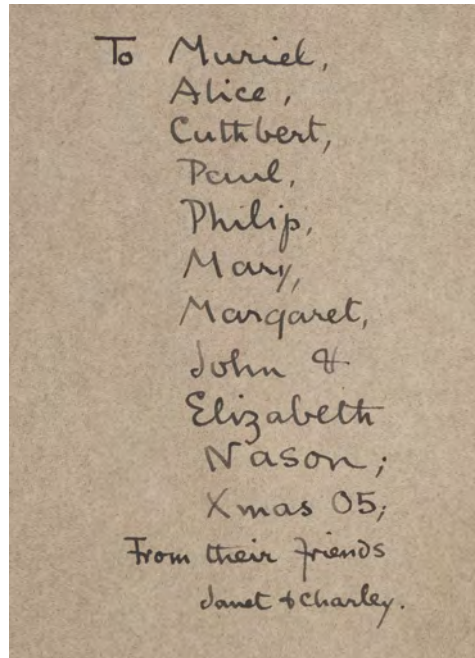 To Muriel,
Alice,
Cuthbert,
Paul,
Philip,
Mary,
Margaret,
John &
Elizabeth
Nason;
Xmas 05;
From their friends
Janet & Charley.